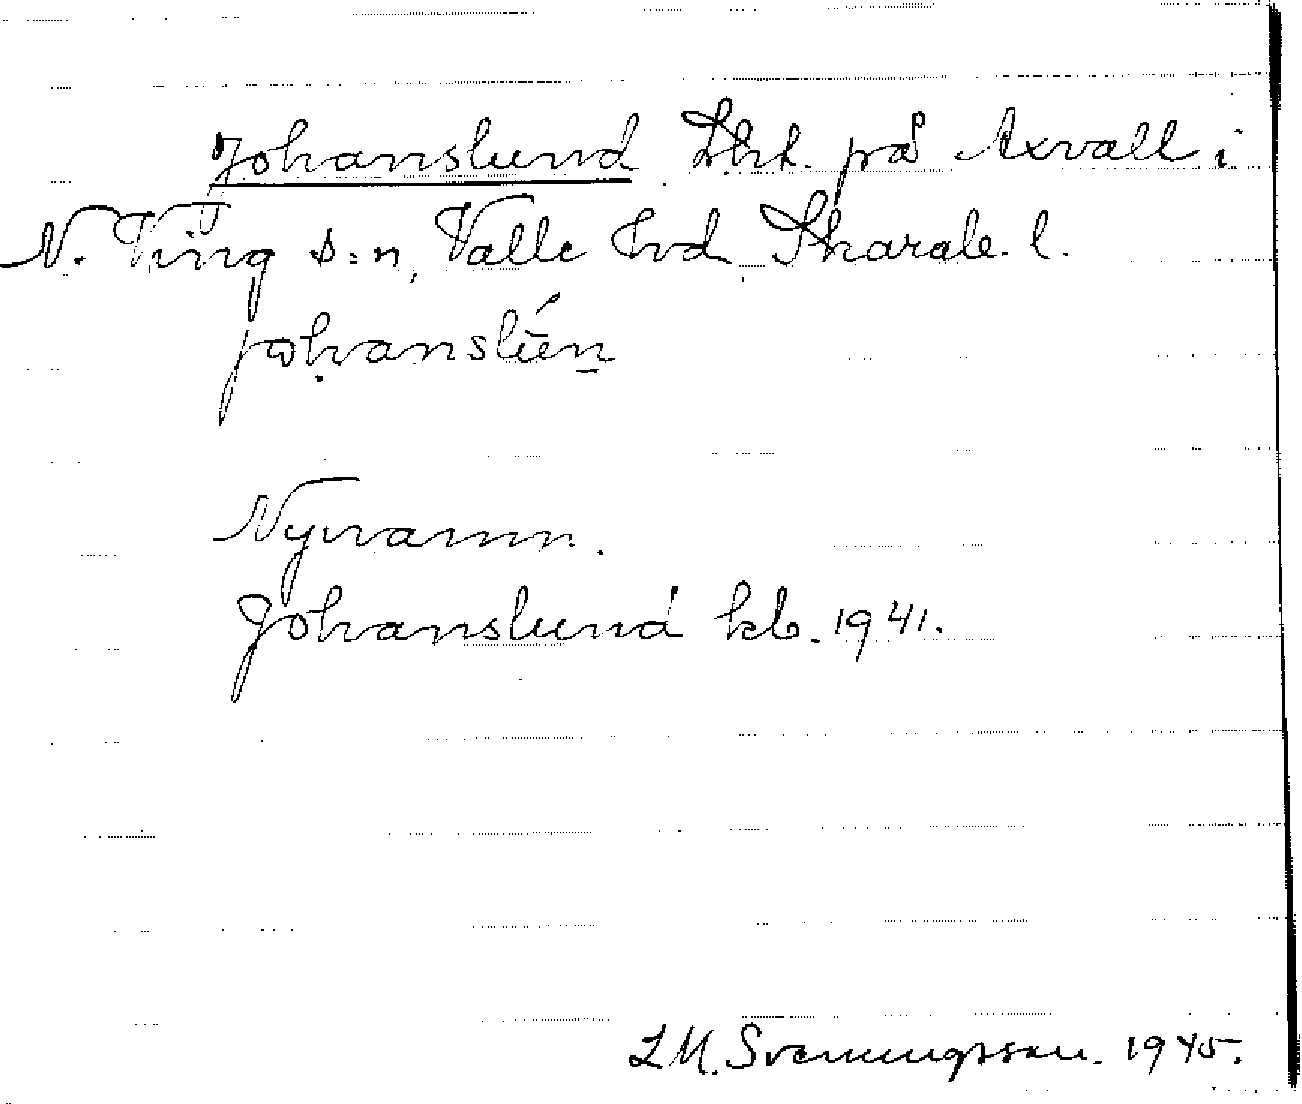 Johanslund Lht. på Axvall i
N. Ving s:n, Valle hd Skarab. l.
johanslún
Nynamn.
Johanslund kb. 1941.
L M. Svenungsson. 1945.